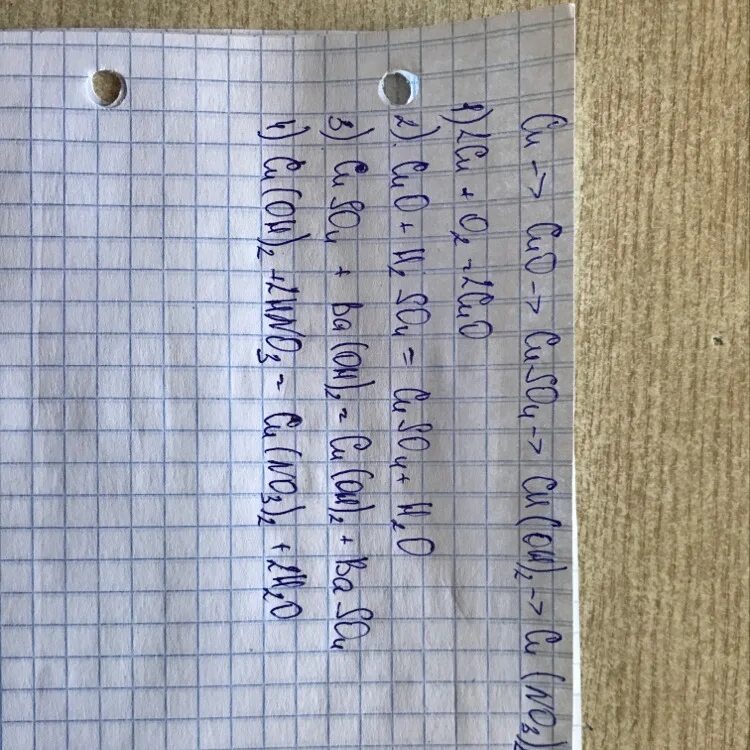 Cu -> CuO -> CuSO₄ -> Cu(OH)₂ -> Cu(NO₃)₂
1) 2Cu + O₂ = 2CuO
2) CuO + H₂SO₄ = CuSO₄ + H₂O
3) CuSO₄ + Ba(OH)₂ = Cu(OH)₂ + BaSO₄
4) Cu(OH)₂ + 2HNO₃ = Cu(NO₃)₂ + 2H₂O